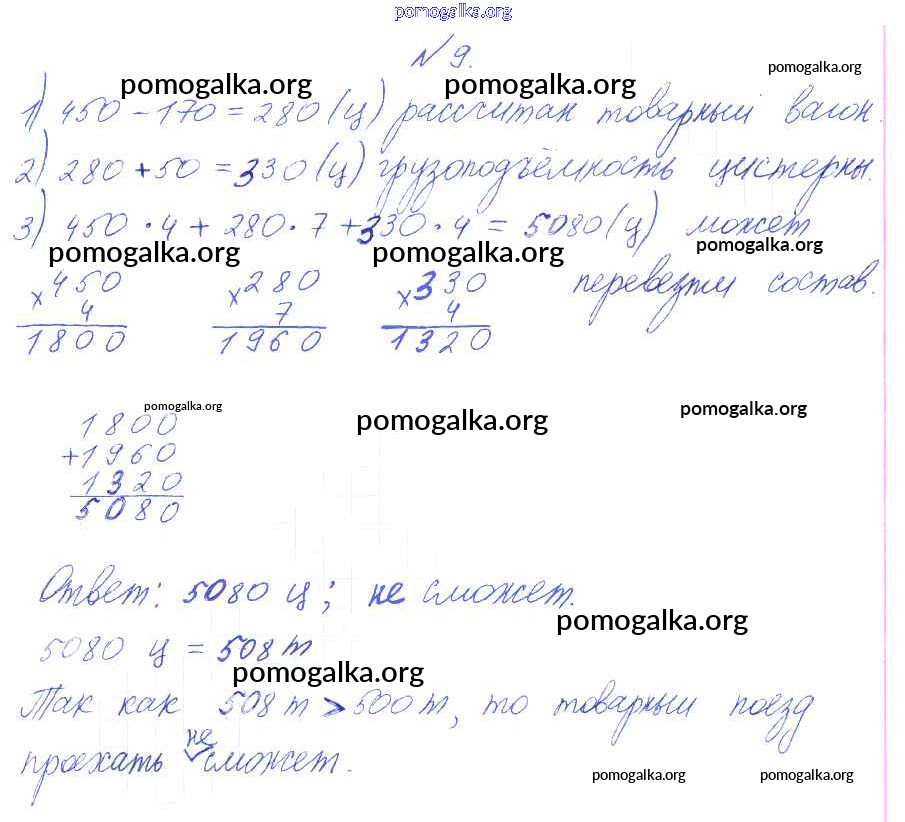 pomogalka.org
N 9.
pomogalka.org pomogalka.org pomogalka.org
1) 450 - 170 = 280 (ц) рассчитан товарный вагон.
2) 280 + 50 = 330 (ц) грузоподъёмность цистерны.
3) 450 · 4 + 280 · 7 + 330 · 4 = 5080 (ц) может
pomogalka.org pomogalka.org pomogalka.org
перевезти состав.
× 450
4
1800
× 280
7
1960
× 330
4
1320
pomogalka.org pomogalka.org pomogalka.org
1800
+1960
1320
5080
Ответ: 5080 ц; не сможет.
pomogalka.org
5080 ц = 508 т
pomogalka.org
Так как 508 т > 500 т, то товарный поезд
проехать не сможет.
pomogalka.org pomogalka.org